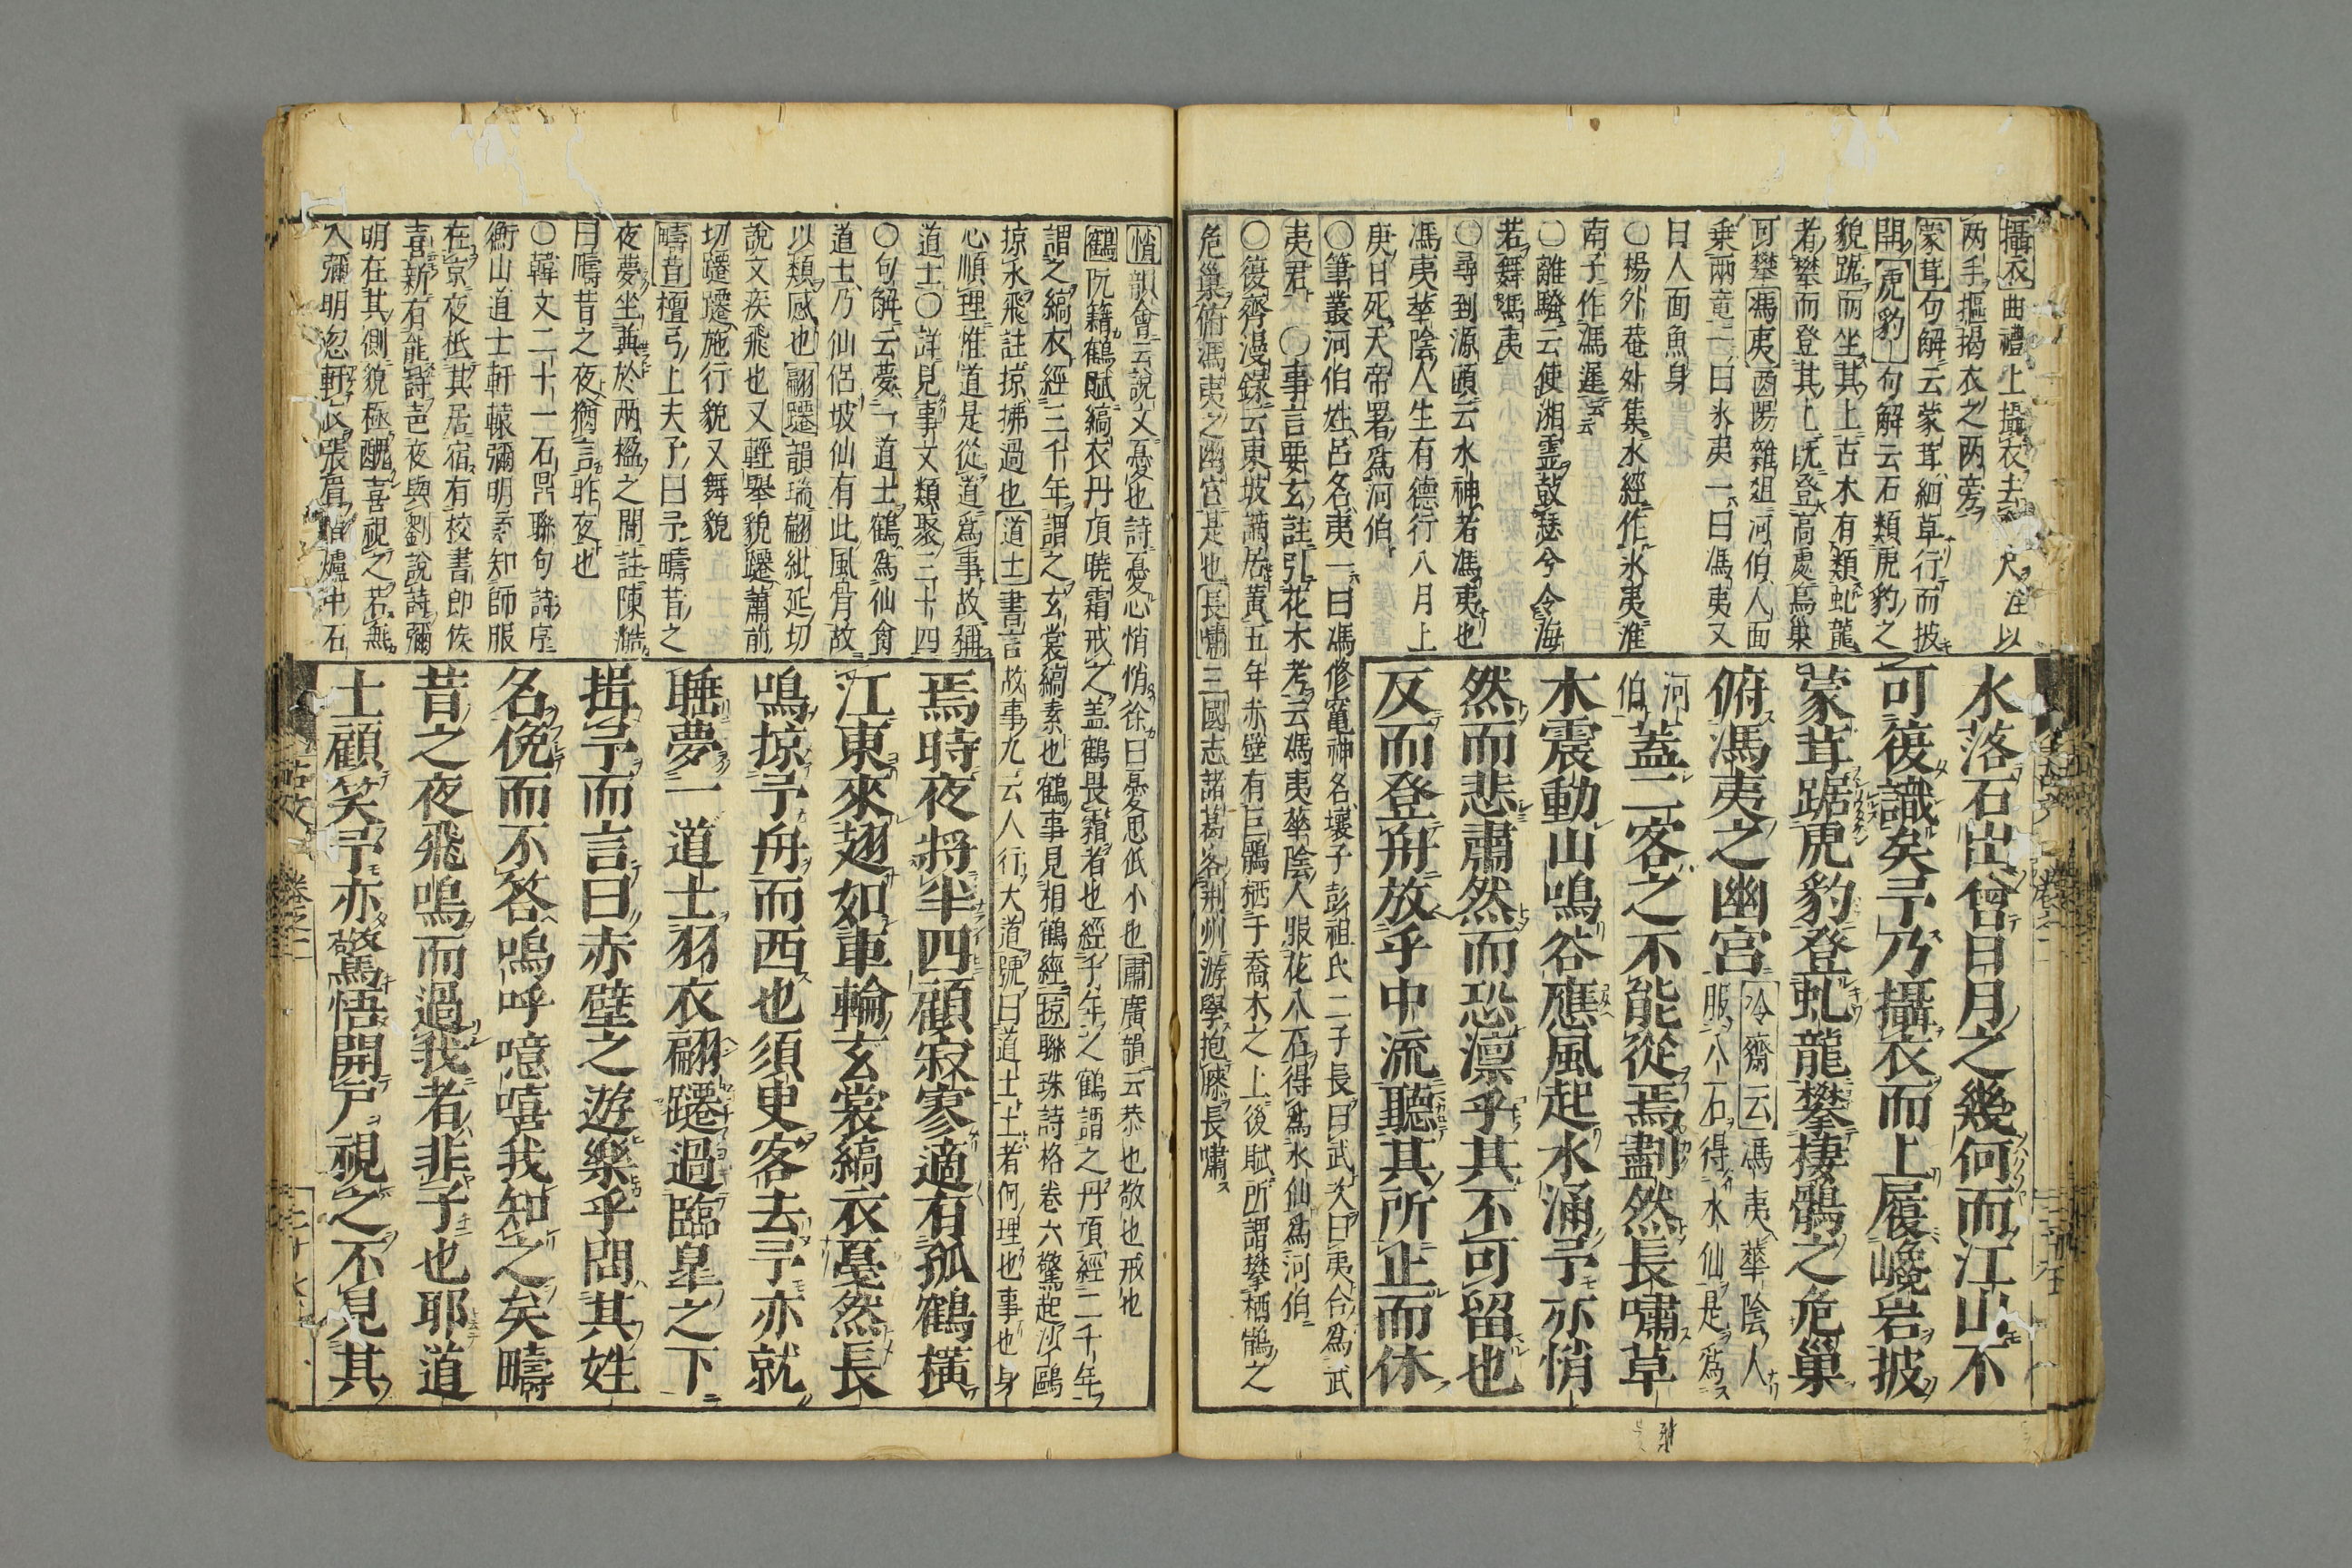 攝衣曲禮上攝衣去齊尺注以
两手摳揭衣之两旁
蒙茸句解云蒙茸細草行而披
開虎豹句解云石類虎豹之
貌踞而坐其上古木有類虬龍
者攀而登其上旣登高處鳥巢
可攀馮夷酉陽雜俎河伯人面
乗兩竜一曰氷夷一曰馮夷又
曰人面魚身
○揚外菴外集水經作氷夷淮
南子作馮遲云云
○離騷云使湘霊鼓瑟兮令海
若舞馮夷
○尋到源頭云水神者馮夷也
馮夷華陰人生有德行八月上
庚日死天帝署為河伯
○筆叢河伯姓呂名夷一曰馮修竃神名壤子彭祖氏二子長曰武次曰夷合為武
夷君 ○事言要玄註引花木考云馮夷華陰人服花八石得為水仙為河伯
○復齊漫録云東坡謫居黃五年赤壁有巨鶻栖于喬木之上後賦所謂攀栖鶻之
危巢俯馮夷之幽宮是也長嘯三國志諸葛客荆州游學抱膝長嘯
水落石出曾日月之幾何而江山不
可復識矣予乃攝衣而上履巉岩披
蒙茸踞虎豹登虬龍攀棲鶻之危巢
俯馮夷之幽宮冷齋云馮夷華陰人服八石得水仙是為
河伯蓋二客之不能從焉劃然長嘯草
木震動山鳴谷應風起水涌予亦悄
然而悲肅然而恐凛乎其不可留也
反而登舟放乎中流聽其所止而休
悄韻會云說文憂也詩憂心悄悄徐曰憂思低小也肅廣韻云恭也敬也戒也
鶴阮籍鶴賦縞衣丹頂暁霜戒之盖鶴畏霜者也經千年之鶴謂之丹頂經二千年
謂之縞衣經三千年謂之玄裳縞素也鶴事見相鶴經掠聯珠詩格卷六驚起沙鷗
掠水飛註掠拂過也道士書言故事九云人行大道號曰道士士者何理也事也身
心順理惟道是從道為事故稱
道士○詳見事文類聚三十四
○句解云夢一道士鶴為仙禽
道士乃仙侶坡仙有此風骨故
以類感也翩躚韻瑞翩紕延切
說文疾飛也又輕舉貌躚蕭前
切蹮躚施行貌又舞貌
疇昔檀弓上夫子曰予疇昔之
夜夢坐奠於两楹之間註陳澔
曰疇昔之夜猶言昨夜也
○韓文二十一石鼎聯句詩序
衡山道士軒轅彌明素知師服
在京夜抵其居宿有校書郎侯
喜新有能詩聲夜與劉說詩彌
明在其側貌極醜喜視之若無
人彌明忽軒衣張眉指爐中石
焉時夜將半四顧寂寥適有孤鶴横
江東來翅如車輪玄裳縞衣戞然長
鳴掠予舟而西也須臾客去予亦就
睡夢一道士羽衣翩躚過臨皐之下
揖予而言曰赤壁之遊樂乎問其姓
名俛而不答嗚呼噫嘻我知之矣疇
昔之夜飛鳴而過我者非子也耶道
士顧笑予亦驚悟開戸視之不見其